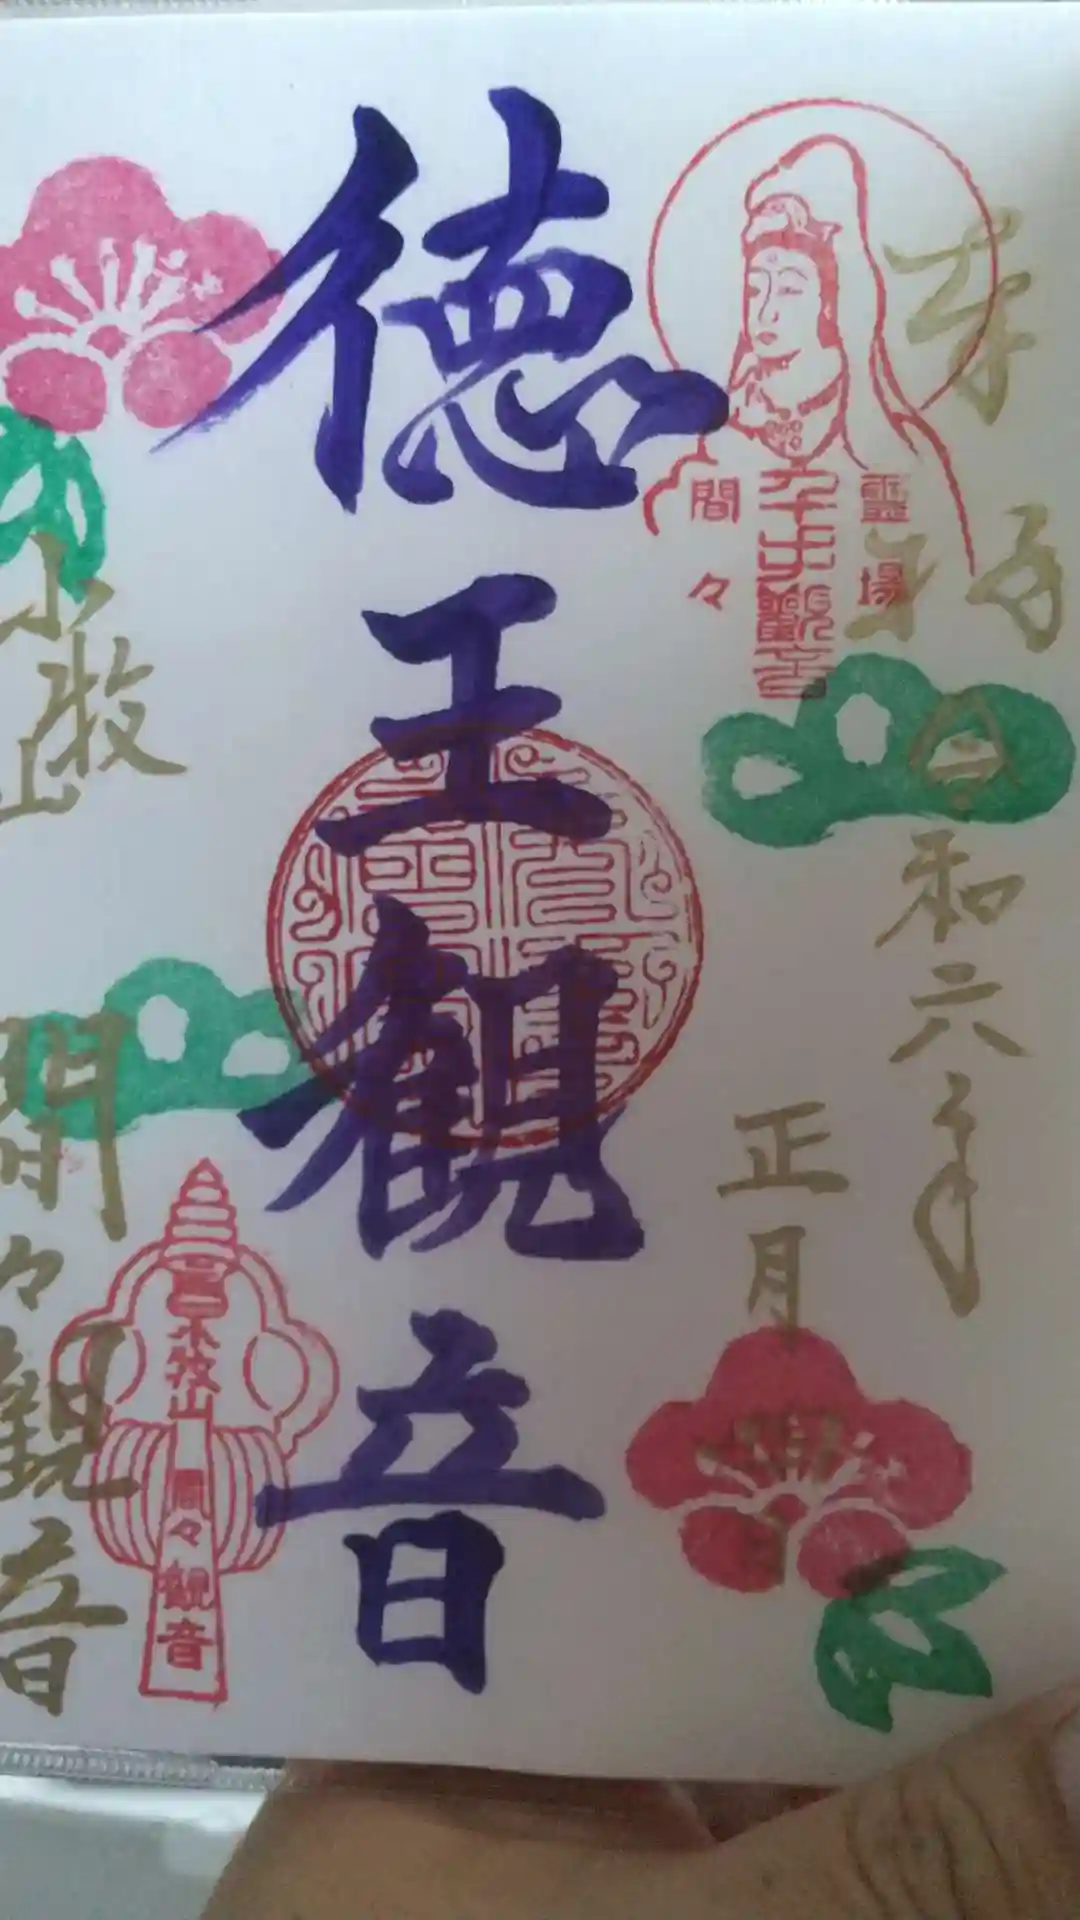 奉拝
令和六年
正月
靈場
千手觀音
間々
徳王観音
小牧山
間々観音
小牧山
間々観音